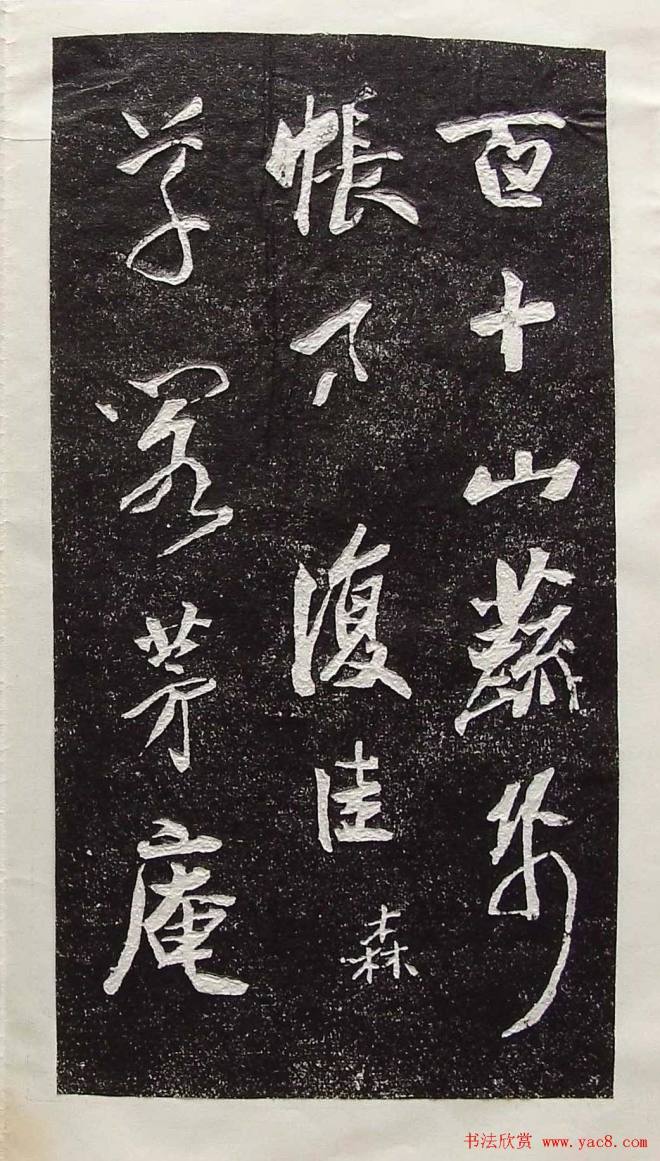 百十山蔬
帳復佳
森
草閣茅庵
书法欣赏 www.yac8.com